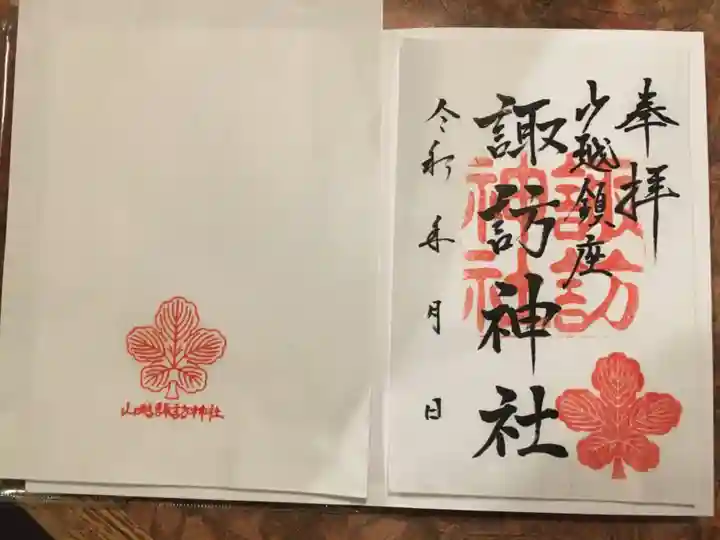 奉拝
山越鎮座
諏訪神社
諏訪
神社
令和 年 月 日
山越諏訪神社